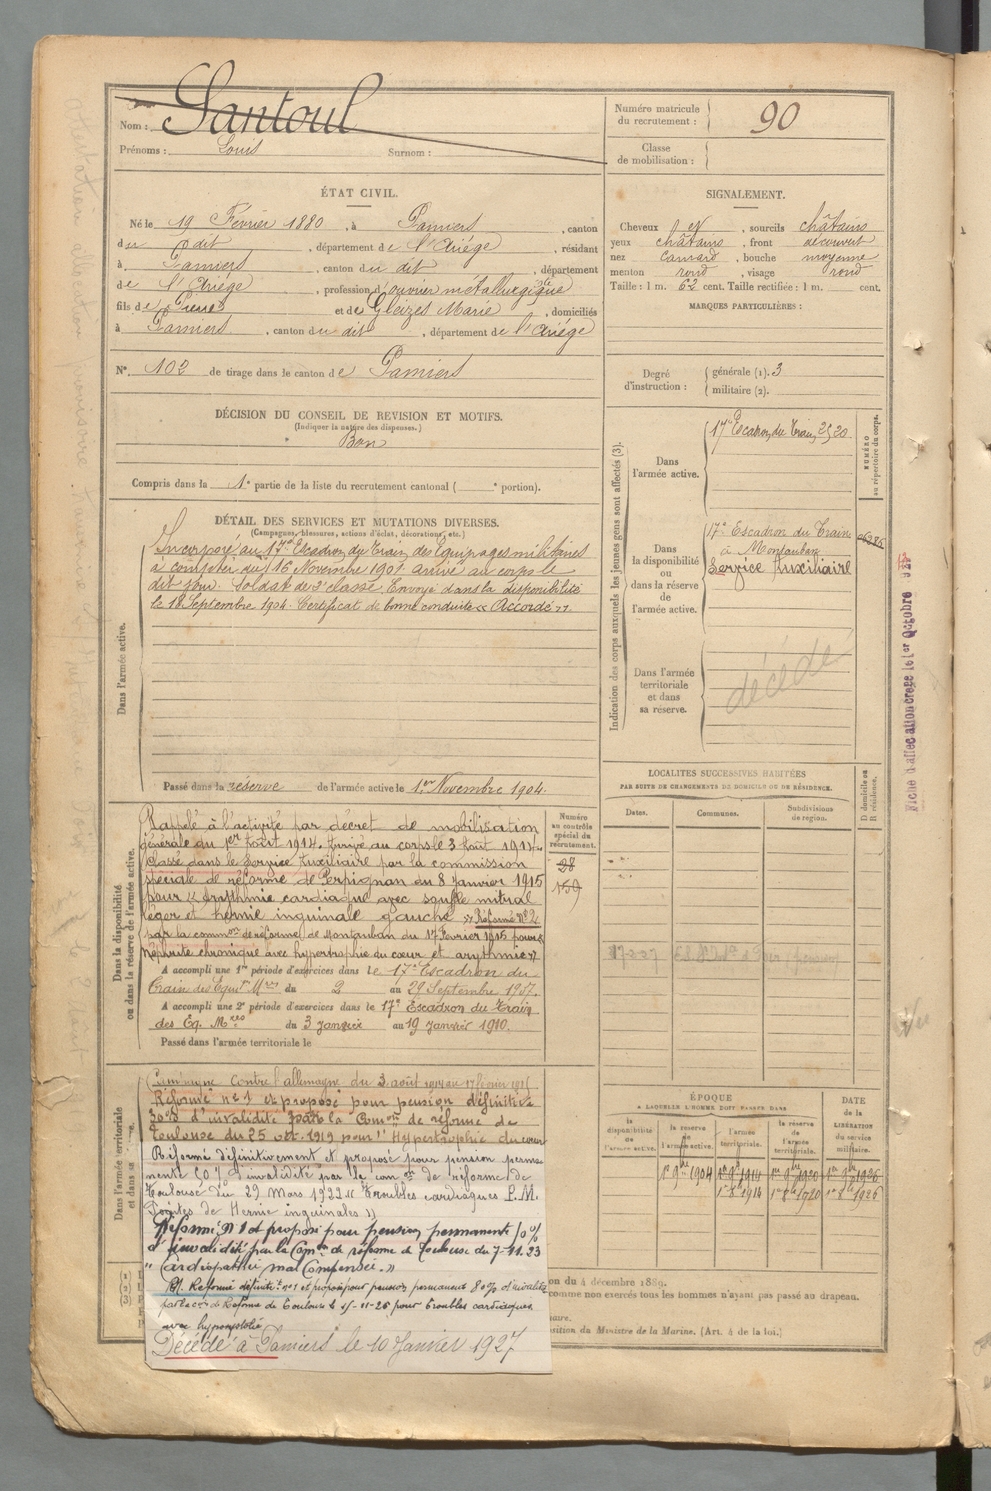 Nom : Santoul
Prénoms : Louis Surnom :
Numéro matricule du recrutement : 90
Classe de mobilisation :
ÉTAT CIVIL.
Né le 19 Février 1880, à Pamiers, canton
du dit, département de l'Ariége, résidant
à Pamiers, canton du dit, département
de l'Ariége, profession d'ouvrier métallurgique
fils de Pierre et de Gleizes Marie, domiciliés
à Pamiers, canton du dit, département de l'Ariége
N° 102 de tirage dans le canton de Pamiers
DÉCISION DU CONSEIL DE REVISION ET MOTIFS.
(Indiquer la nature des dispenses.)
Bon
Compris dans la 1e partie de la liste du recrutement cantonal ( e portion).
DÉTAIL DES SERVICES ET MUTATIONS DIVERSES.
(Campagnes, blessures, actions d'éclat, décorations, etc.)
Dans l'armée active.
Incorporé au 17e Escadron du Train des Equipages militaires
à compter du 16 Novembre 1901 arrivé au corps le
dit jour. Soldat de 2e classe, Envoyé dans la disponibilité
le 18 Septembre 1904. Certificat de bonne conduite « Accordé ».
Passé dans la réserve de l'armée active le 1er Novembre 1904.
Dans la disponibilité
ou dans la réserve de l'armée active.
Rappelé à l'activité par décret de mobilisation
générale du 1er Août 1914. Arrivé au corps le 3 Août 1914.
Classé dans le Service Auxiliaire par la commission
spéciale de réforme de Perpignan du 8 Janvier 1915
pour « Arythmie cardiaque avec souffle mitral
léger et hernie inguinale gauche ». Réformé N°2
par la common de réforme de Montauban du 17 Février 1915 pour «
néphrite chronique avec hypertrophie du cœur et arythmie »
A accompli une 1re période d'exercices dans le 17e Escadron du
Train des Equip. Mres du 2 au 29 Septembre 1907.
A accompli une 2e période d'exercices dans le 17e Escadron du Train
des Eq. Mres du 3 Janvier au 19 Janvier 1910.
Passé dans l'armée territoriale le
Numéro
au contrôle
spécial du
recrutement.
28
159
Dans l'armée territoriale
et dans sa
Campagne contre l'allemagne du 3 août 1914 au 17 février 1915
Réformé n° 1 et proposé pour pension définitive
30 % d'invalidité par la Comon de réforme de
Toulouse du 25 oct. 1919 pour « Hypertrophie du cœur
Réformé définitivement et proposé pour pension perma-
nente 60 % d'invalidité par la comon de réforme de
Toulouse du 29 Mars 1922 « Troubles cardiaques P.M.
Pointes de Hernie inguinales »
Réformé N° 1 et proposé pour pension permanente %
d'invalidité par la Comon de réforme de Toulouse du 7-11.23
« Cardiopathie mal Compensée. »
Réformé définitif n°1 et proposé pour pension permanente 80% d'invalidité
par la con de Réforme de Toulouse le -11-26 pour troubles cardiaques
avec hyposystolie
Décédé à Pamiers le 10 Janvier 1927
SIGNALEMENT.
Cheveux et, sourcils châtains
yeux châtains, front découvert
nez camard, bouche moyenne
menton rond, visage rond
Taille : 1 m. 62 cent. Taille rectifiée : 1 m. cent.
MARQUES PARTICULIÈRES :
Degré d'instruction :
générale (1). 3
militaire (2).
Indication des corps auxquels les jeunes gens sont affectés (3).
Dans
l'armée active.
17e Escadron du Train 2520
NUMÉRO
au répertoire du corps.
Dans
la disponibilité
ou
dans la réserve
de
l'armée active.
17e Escadron du Train
à Montauban
Service Auxiliaire
Dans l'armée
territoriale
et dans
sa réserve.
décédé
LOCALITES SUCCESSIVES HABITÉES
PAR SUITE DE CHANGEMENTS DE DOMICILE OU DE RÉSIDENCE.
Dates. Communes. Subdivisions de région.
D domicile ou
R résidence.
ÉPOQUE
A LAQUELLE L'HOMME DOIT PASSER DANS
la disponibilité de l'armée active. la réserve de l'armée active. l'armée territoriale. la réserve de l'armée territoriale.
DATE de la LIBÉRATION du service militaire.
1er 9bre 1904 1er 9bre 1914 1er 9bre 1920 1er 9bre 1926
1er 8bre 1914 1er 8bre 1920 1er 8bre 1926
on du 4 décembre 1889.
comme non exercés tous les hommes n'ayant pas passé au drapeau.
naire.
osition du Ministre de la Marine. (Art. 4 de la loi.)